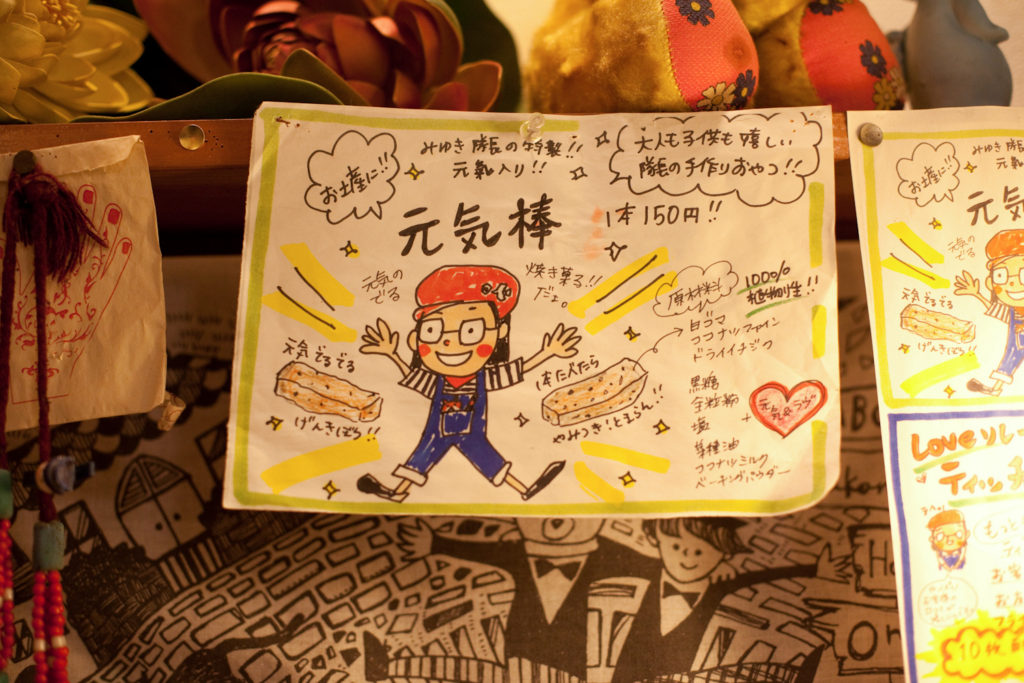 お土産に!!
みゆき隊長の特製!!
元氣入り!!
大人も子供も嬉しい
隊長の手作りおやつ!!
元気棒
1本150円!!
元気の
でる
焼き菓子!!
だよ。
原材料
100%
植物性!!
白ゴマ
ココナツファイン
ドライイチジク
黒糖
全粒粉
塩
菜種油
ココナツミルク
ベーキングパウダー
+
元気&ラヴ
元気でるでる
げんきぼう!!
1本たべたら
やみつき!とまらん!!
お土産に!!
みゆき隊
元気
元気の
でる
元気でるでる
げんきぼう!!
Loveソレ
ティッシ
もっと
10枚